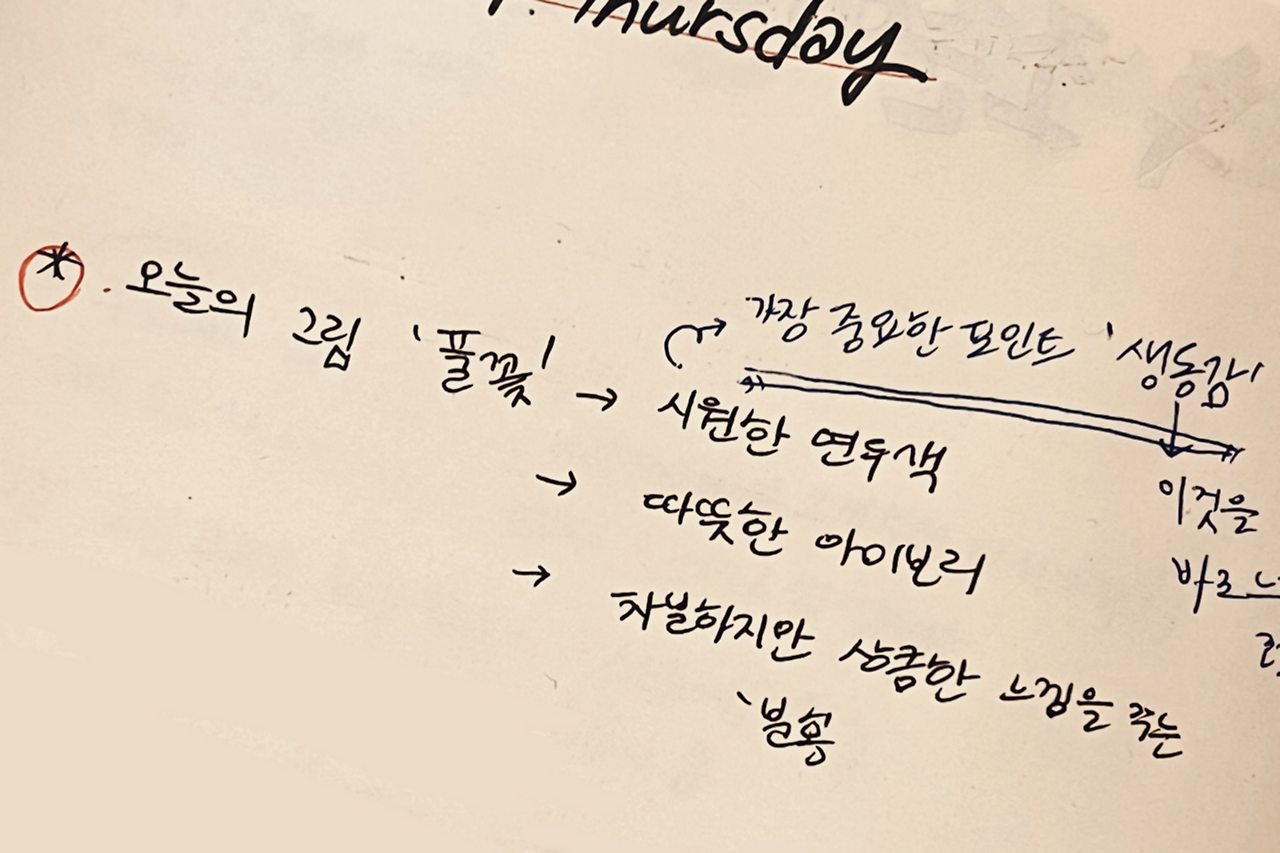 Thursday
*. 오늘의 그림 '풀꽃'
가장 중요한 포인트 '생동감'
→ 시원한 연두색
이것을
→ 따뜻한 아이보리
바로
→ 차분하지만 상큼한 느낌을 주는
'분홍